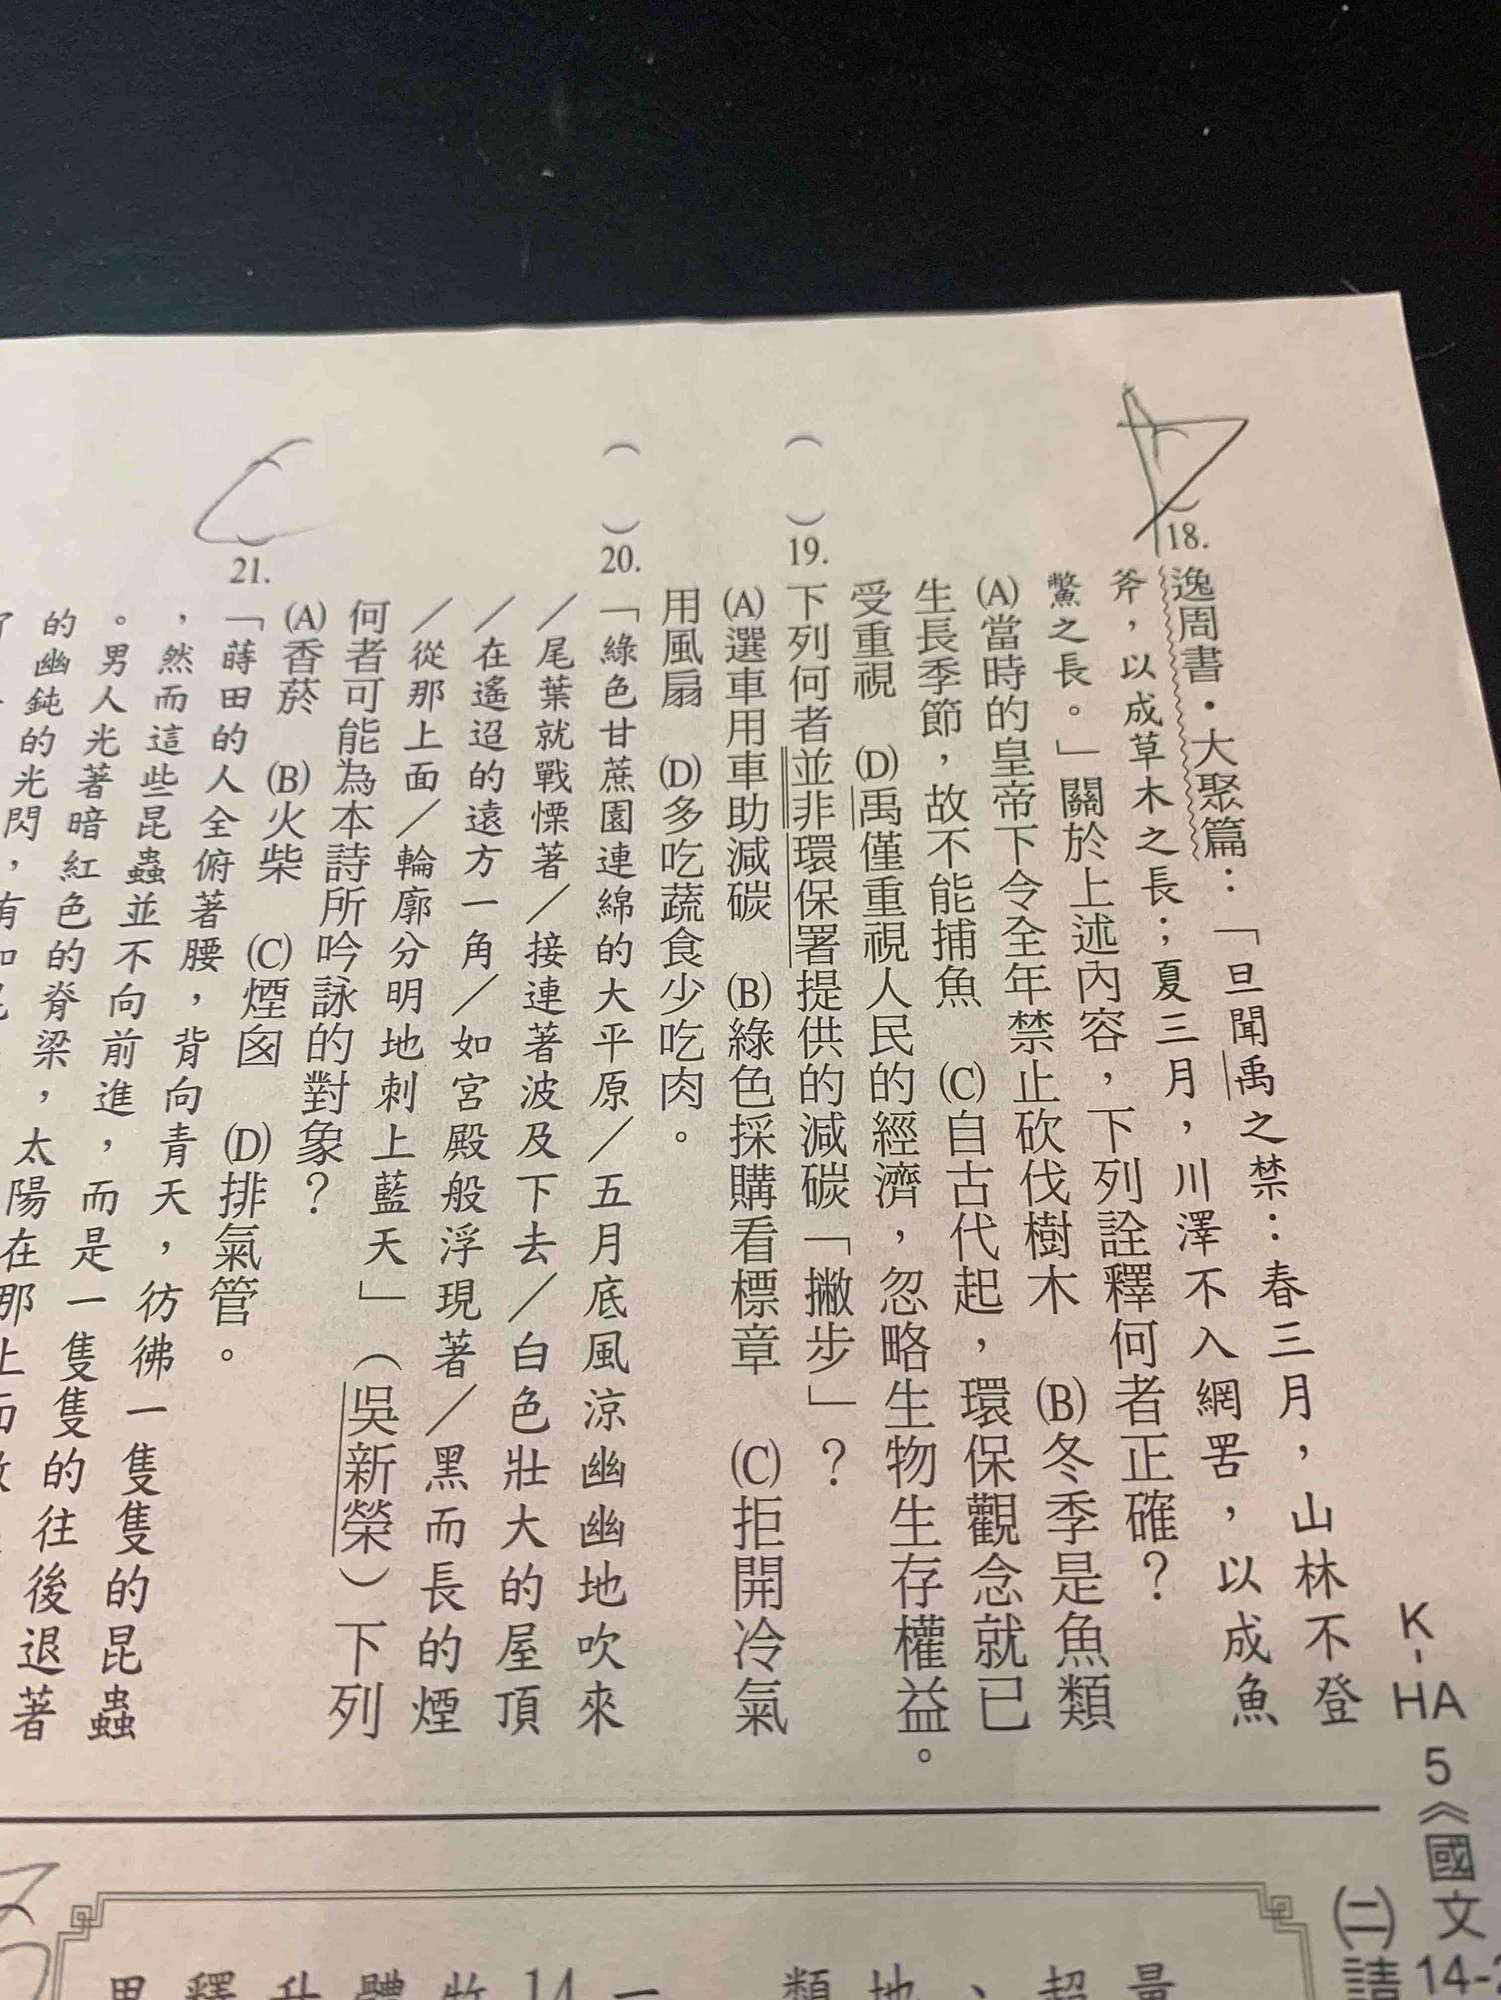 K-HA 5《國文 14-
18.逸周書・大聚篇：「旦聞禹之禁：春三月，山林不登
斧，以成草木之長；夏三月，川澤不入網罟，以成魚
鱉之長。」關於上述內容，下列詮釋何者正確？
(A)當時的皇帝下令全年禁止砍伐樹木 (B)冬季是魚類
生長季節，故不能捕魚 (C)自古代起，環保觀念就已
受重視 (D)禹僅重視人民的經濟，忽略生物生存權益。
( )19.下列何者並非環保署提供的減碳「撇步」？
(A)選車用車助減碳 (B)綠色採購看標章 (C)拒開冷氣
用風扇 (D)多吃蔬食少吃肉。
( )20.「綠色甘蔗園連綿的大平原／五月底風涼幽幽地吹來
／尾葉就戰慄著／接連著波及下去／白色壯大的屋頂
／在遙迢的遠方一角／如宮殿般浮現著／黑而長的煙
／從那上面／輪廓分明地刺上藍天」（吳新榮）下列
何者可能為本詩所吟詠的對象？
(A)香菸 (B)火柴 (C)煙囪 (D)排氣管。
C 21.「蒔田的人全俯著腰，背向青天，彷彿一隻隻的昆蟲
，然而這些昆蟲並不向前進，而是一隻隻的往後退著
。男人光著暗紅色的脊梁，太陽在那上面
的幽鈍的光閃，有如
(二)請